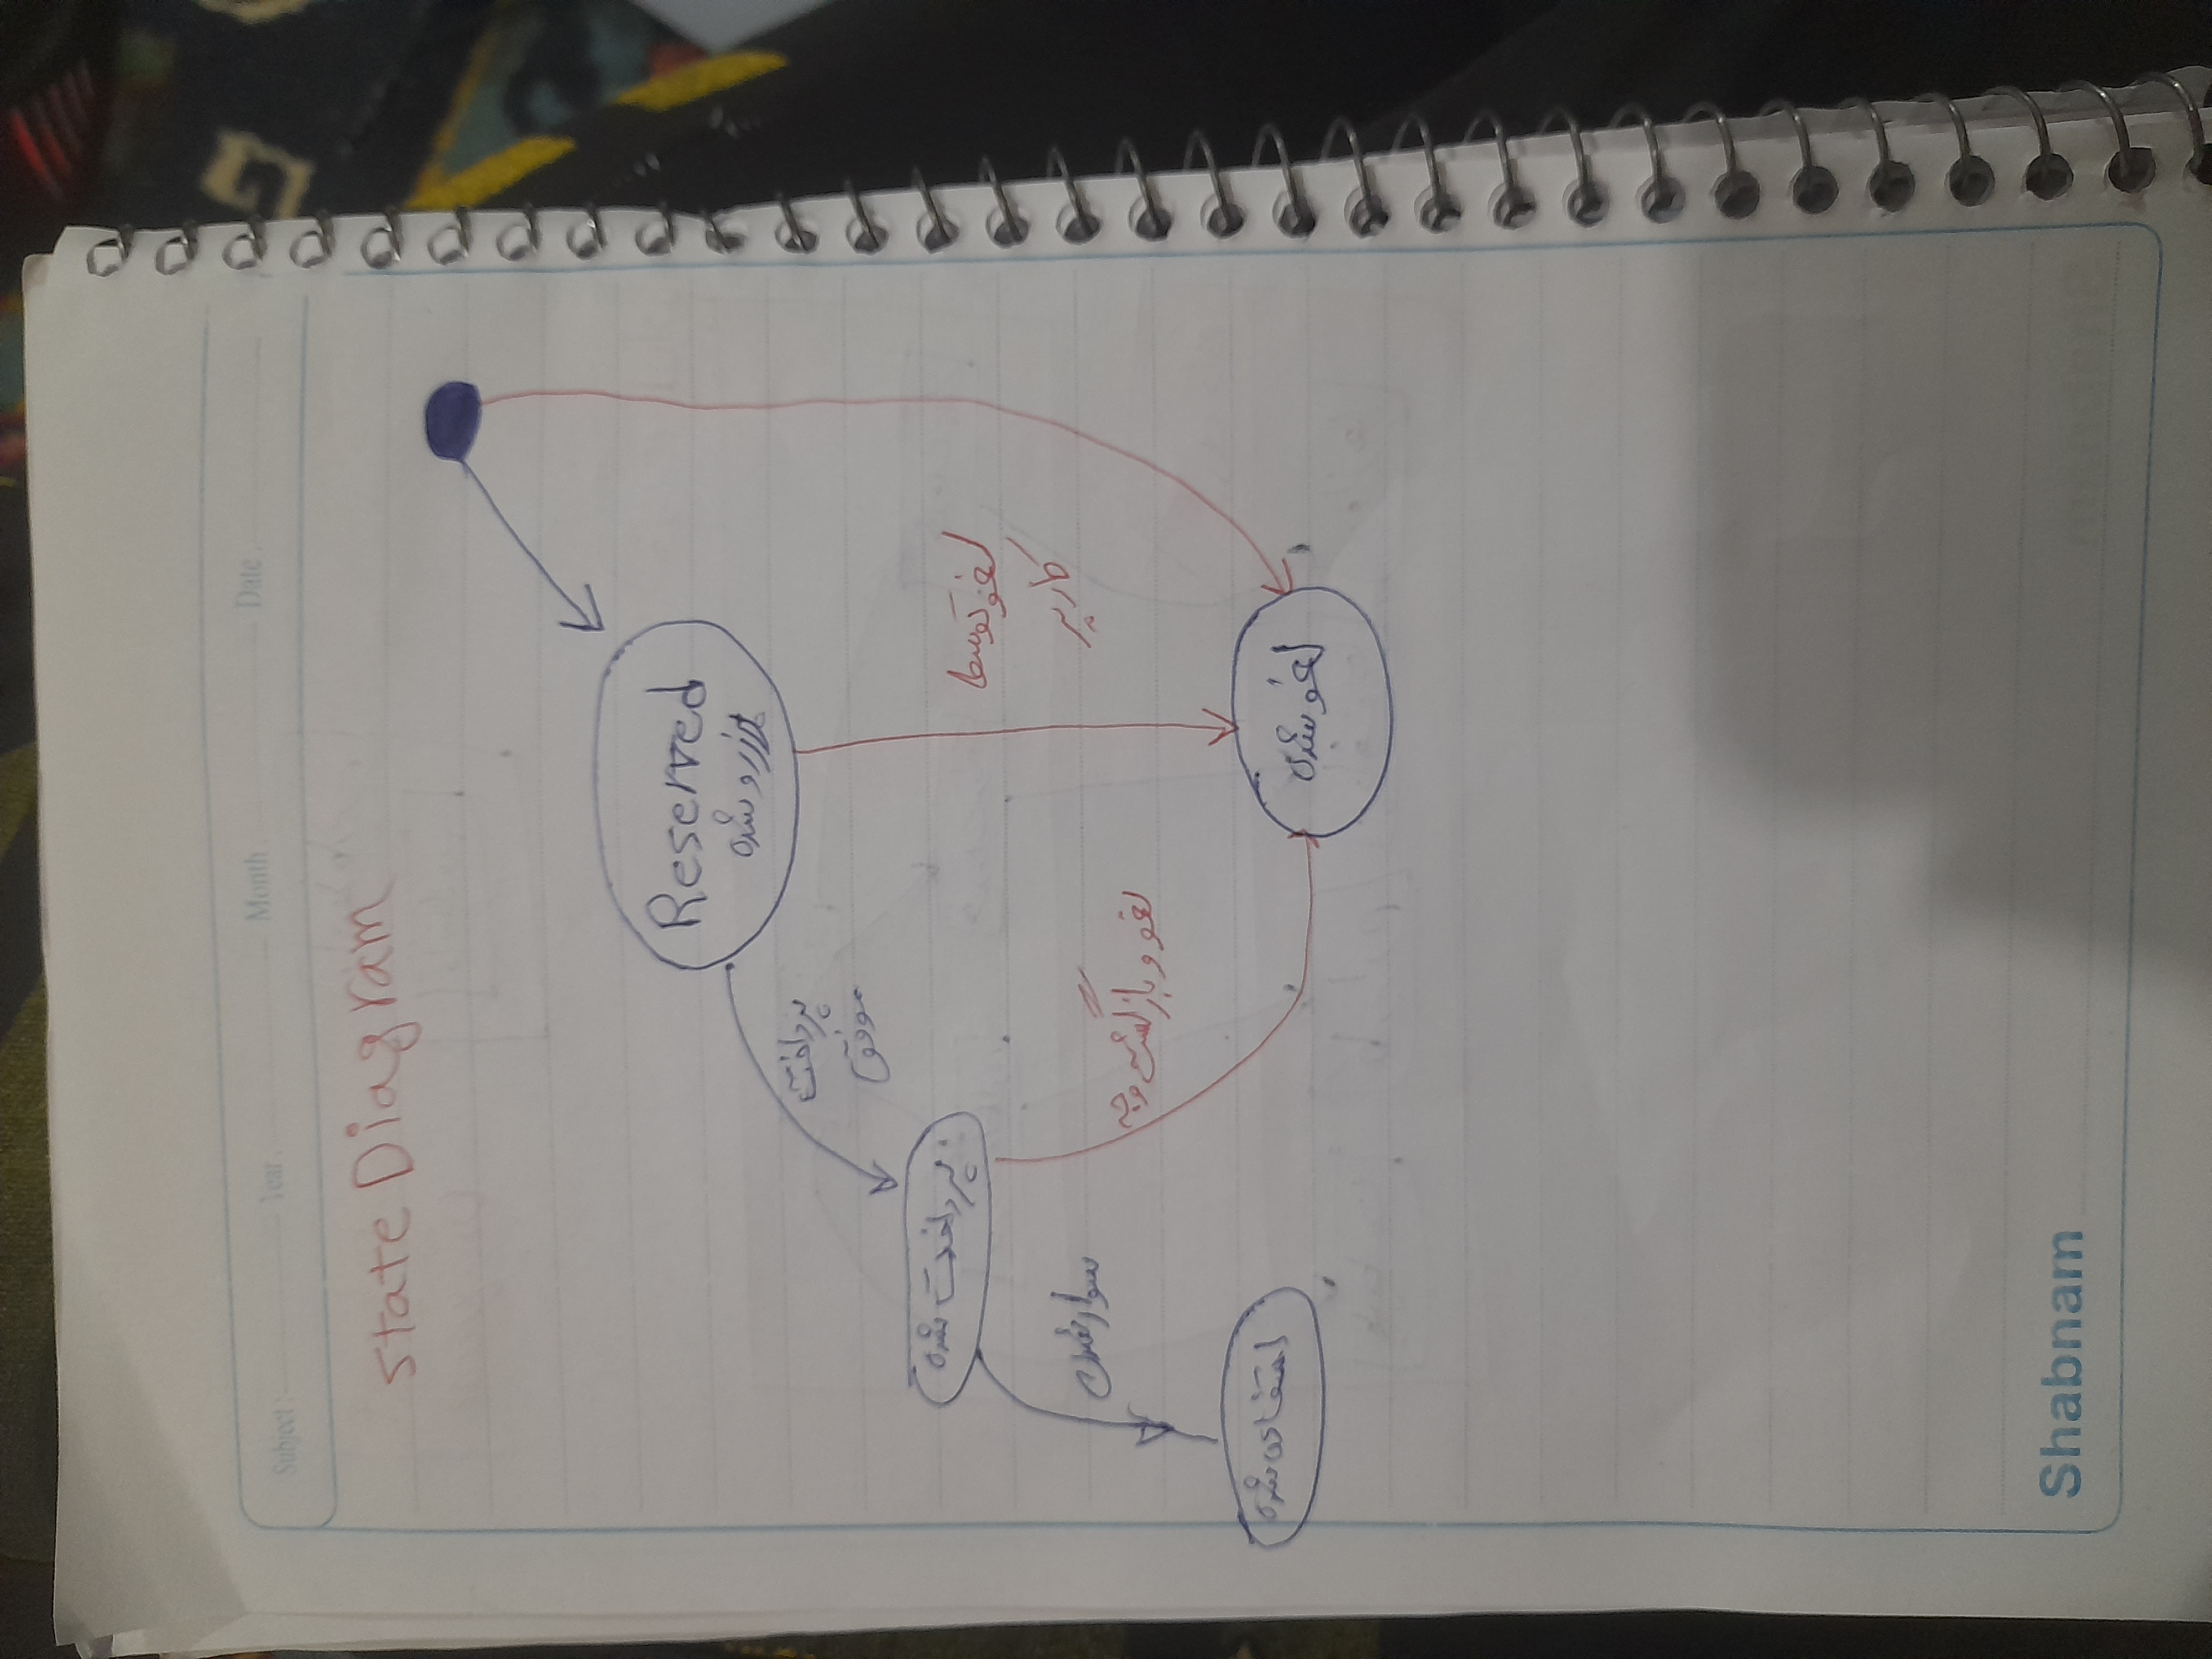 Subject : Year . Month . Date .
state Diagram
Reserved
رزرو شده
پرداخت
موفق
پرداخت شده
لغو توسط
کاربر
سوار شدن
لغو و بازگشت وجه
استفاده شده
لغو شده
Shabnam